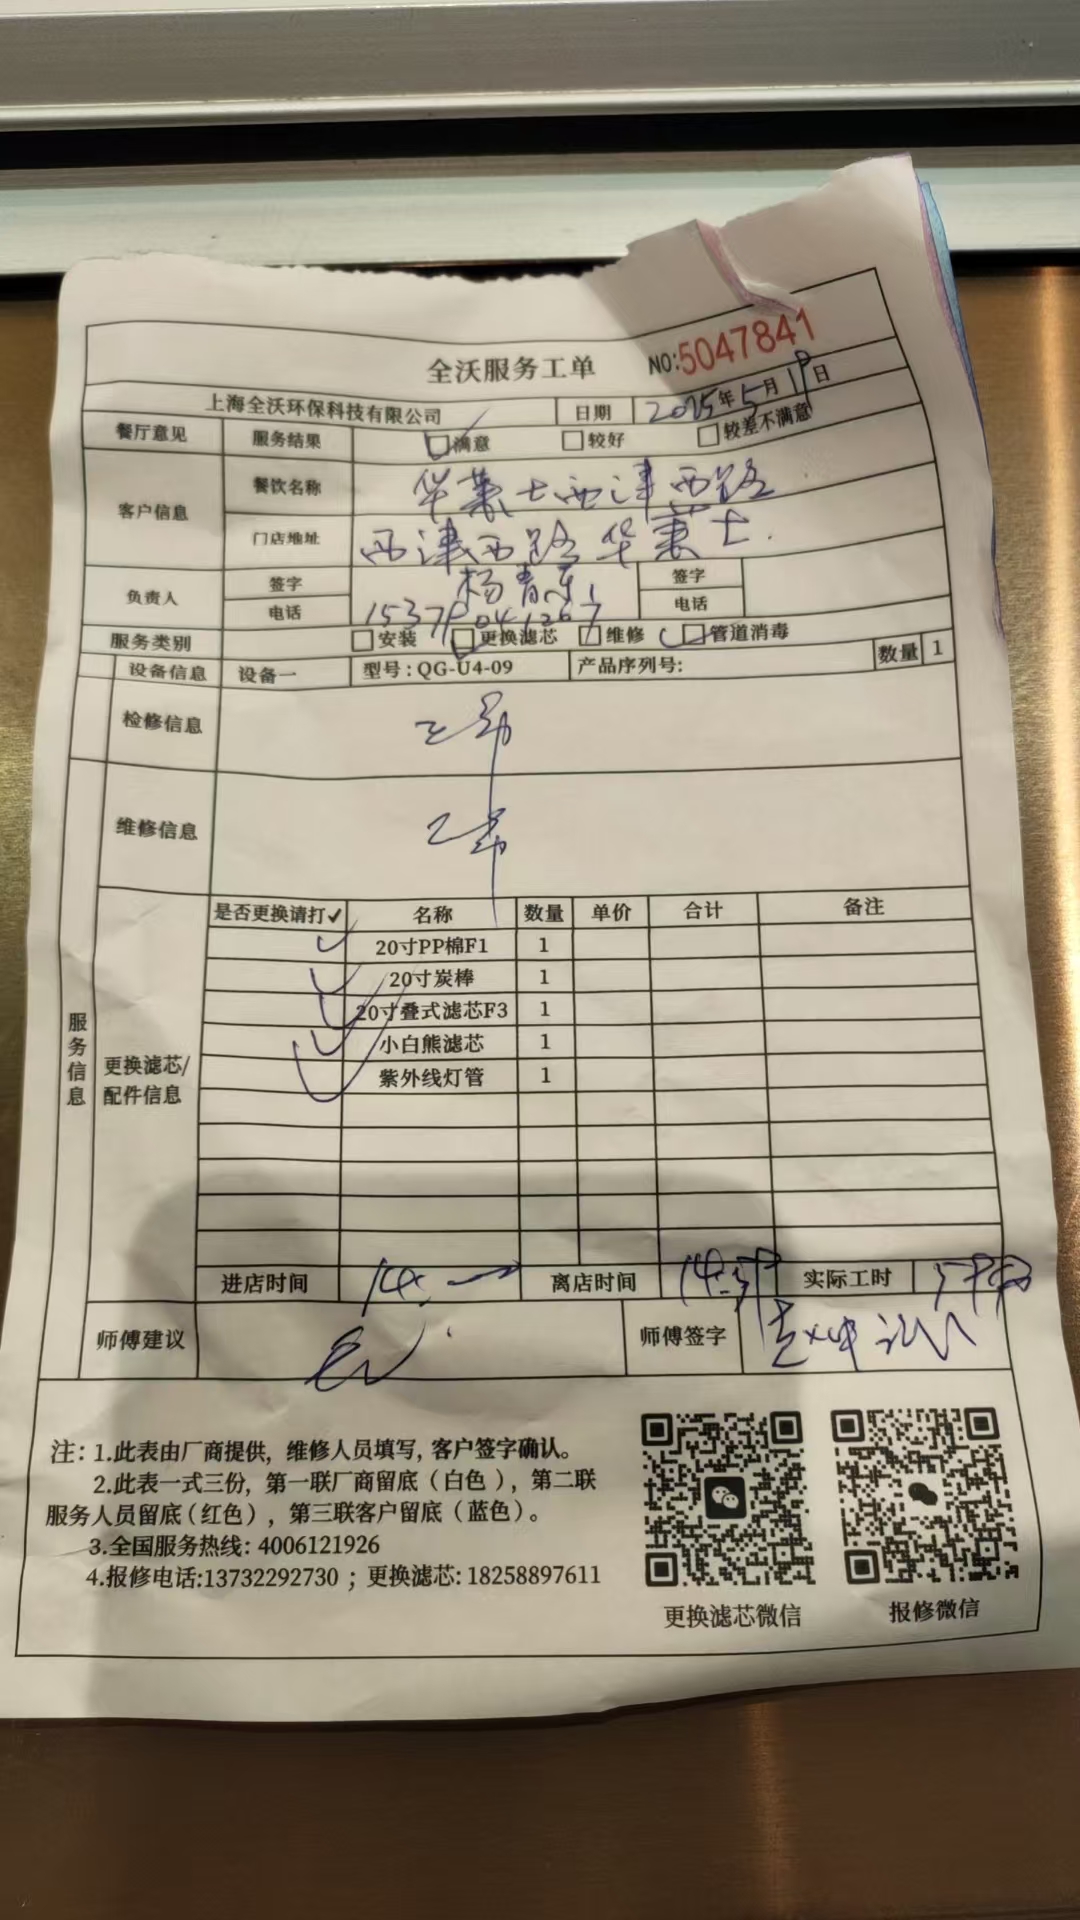 全沃服务工单
NO:5047841
上海全沃环保科技有限公司 日期 2025年5月19日
餐厅意见 服务结果 满意 较好 较差不满意
客户信息 餐饮名称 华莱士西津西路
门店地址 西津西路华莱士
负责人 签字 签字
电话 电话
服务类别 安装 更换滤芯 维修 管道消毒
设备信息 设备一 型号:QG-U4-09 产品序列号: 数量 1
检修信息
维修信息
服务信息
更换滤芯/
配件信息
是否更换请打✓ 名称 数量 单价 合计 备注
✓ 20寸PP棉F1 1
✓ 20寸炭棒 1
✓ 20寸叠式滤芯F3 1
✓ 小白熊滤芯 1
✓ 紫外线灯管 1
进店时间 离店时间 14:59 实际工时
师傅建议 师傅签字
注: 1.此表由厂商提供, 维修人员填写, 客户签字确认。
2.此表一式三份, 第一联厂商留底(白色), 第二联
服务人员留底(红色), 第三联客户留底(蓝色)。
3.全国服务热线: 4006121926
4.报修电话:13732292730 ; 更换滤芯: 18258897611
更换滤芯微信 报修微信